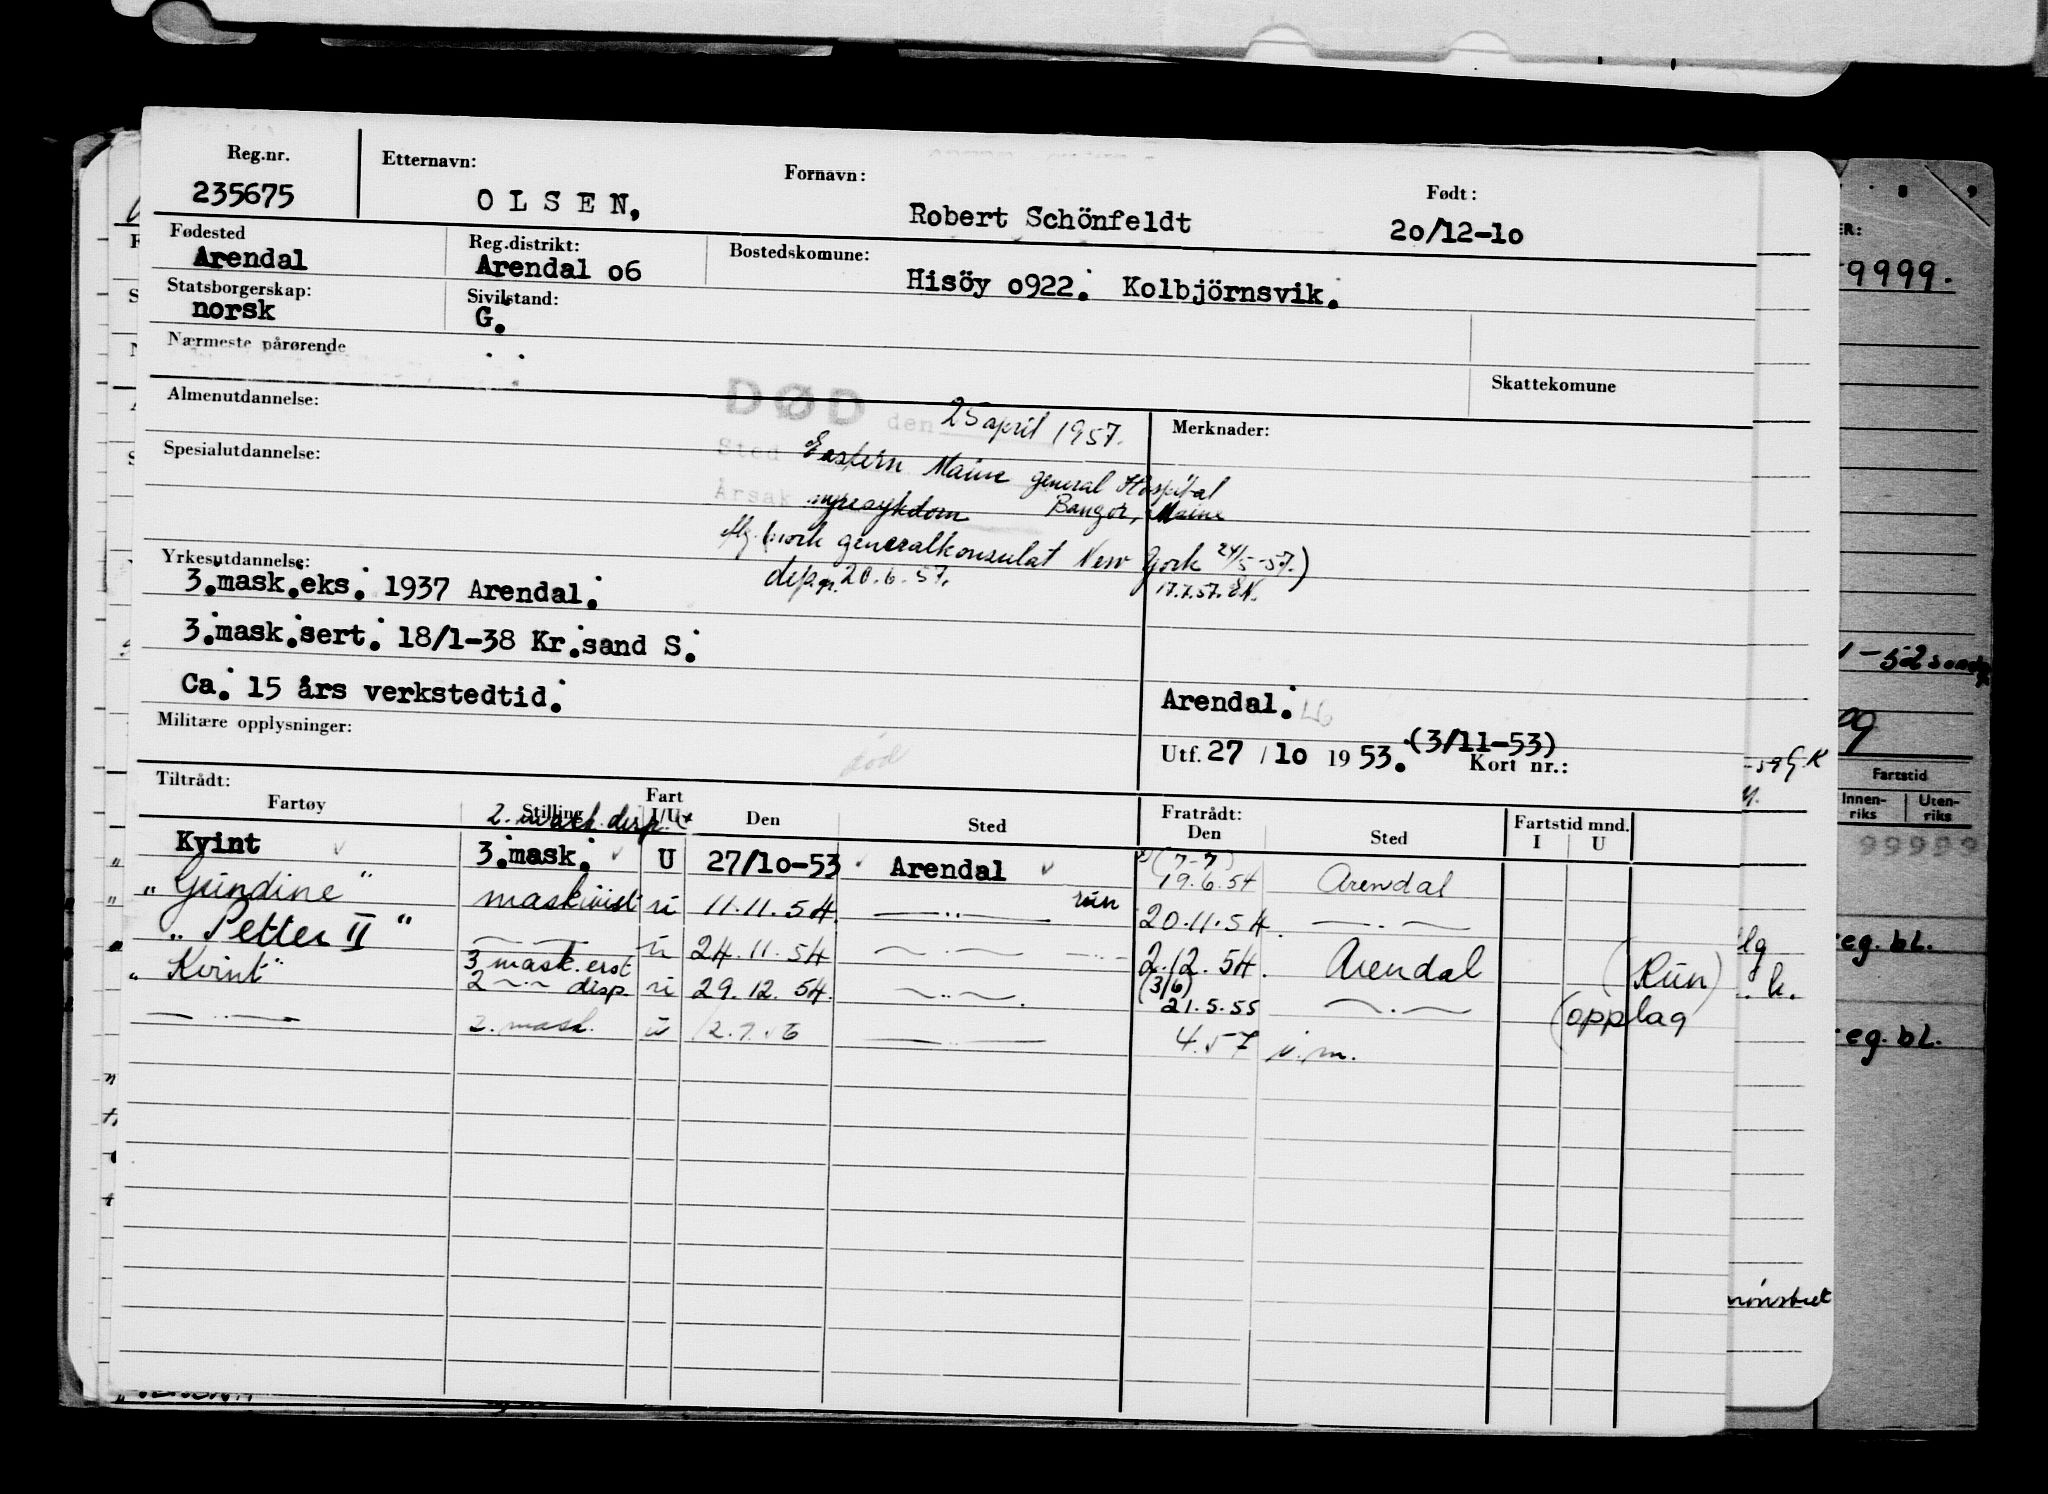 Reg.nr.
235675
Etternavn:
OLSEN,
Fornavn:
Robert Schönfeldt
Født:
20/12-10
Fødested
Arendal
Reg.distrikt:
Arendal 06
Bostedskomune:
Hisöy 0922. Kolbjörnsvik.
Statsborgerskap:
norsk
Sivilstand:
G.
Nærmeste pårørende
Skattekomune
Almenutdannelse:
DØD den 25 april 1957.
Merknader:
Spesialutdannelse:
Sted Eastern Maine general Hospital
Årsak nyresykdom Bangor, Maine
generalkonsulat New York 24/5-57.)
20.6.57. 17.7.57.
Yrkesutdannelse:
3.mask.eks. 1937 Arendal.
3.mask.sert. 18/1-38 Kr.sand S.
Ca. 15 års verkstedtid.
Arendal.
Militære opplysninger:
død
Utf. 27 / 10 1953. (3/11-53)
Kort nr.:
Tiltrådt:
Fartøy
Stilling
Fart
I/U
Den
Sted
Fratrådt:
Den
Sted
Fartstid mnd.
I U
2. mask. disp.
Kvint 3.mask. U 27/10-53 Arendal (7-7) 19.6.54 Arendal
" Gundine " maskinist 11.11.54 —..— 20.11.54. —..—
„ Petter II " —..— 24.11.54 —..— 2.12.54. Arendal (Run)
„ Kvint" 3 mask. erst
2 —..— disp. 29.12.54. —..—. (3/6) 21.5.55 —..— (opplag
—..— 2. mask. —..— 4.57 i.m.
ER:
9999.
1-52
Fartstid
Innen-
riks
Uten-
riks
99999
eg. bl.
eg. bl.
mønstret